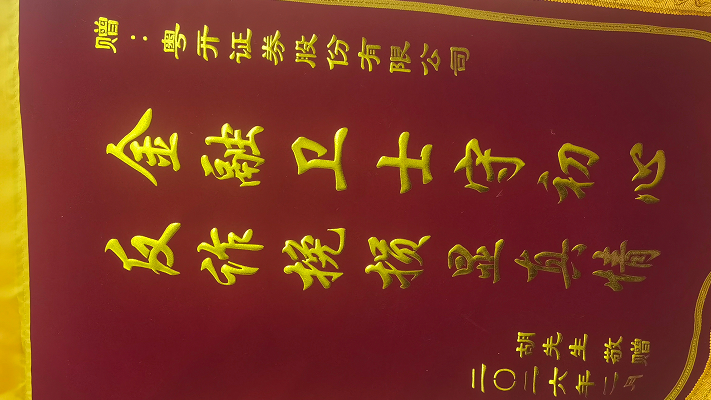 赠：粤开证券股份有限公司
金融卫士守初心
反诈挽损显真情
胡先生 敬赠
二〇二六年二月